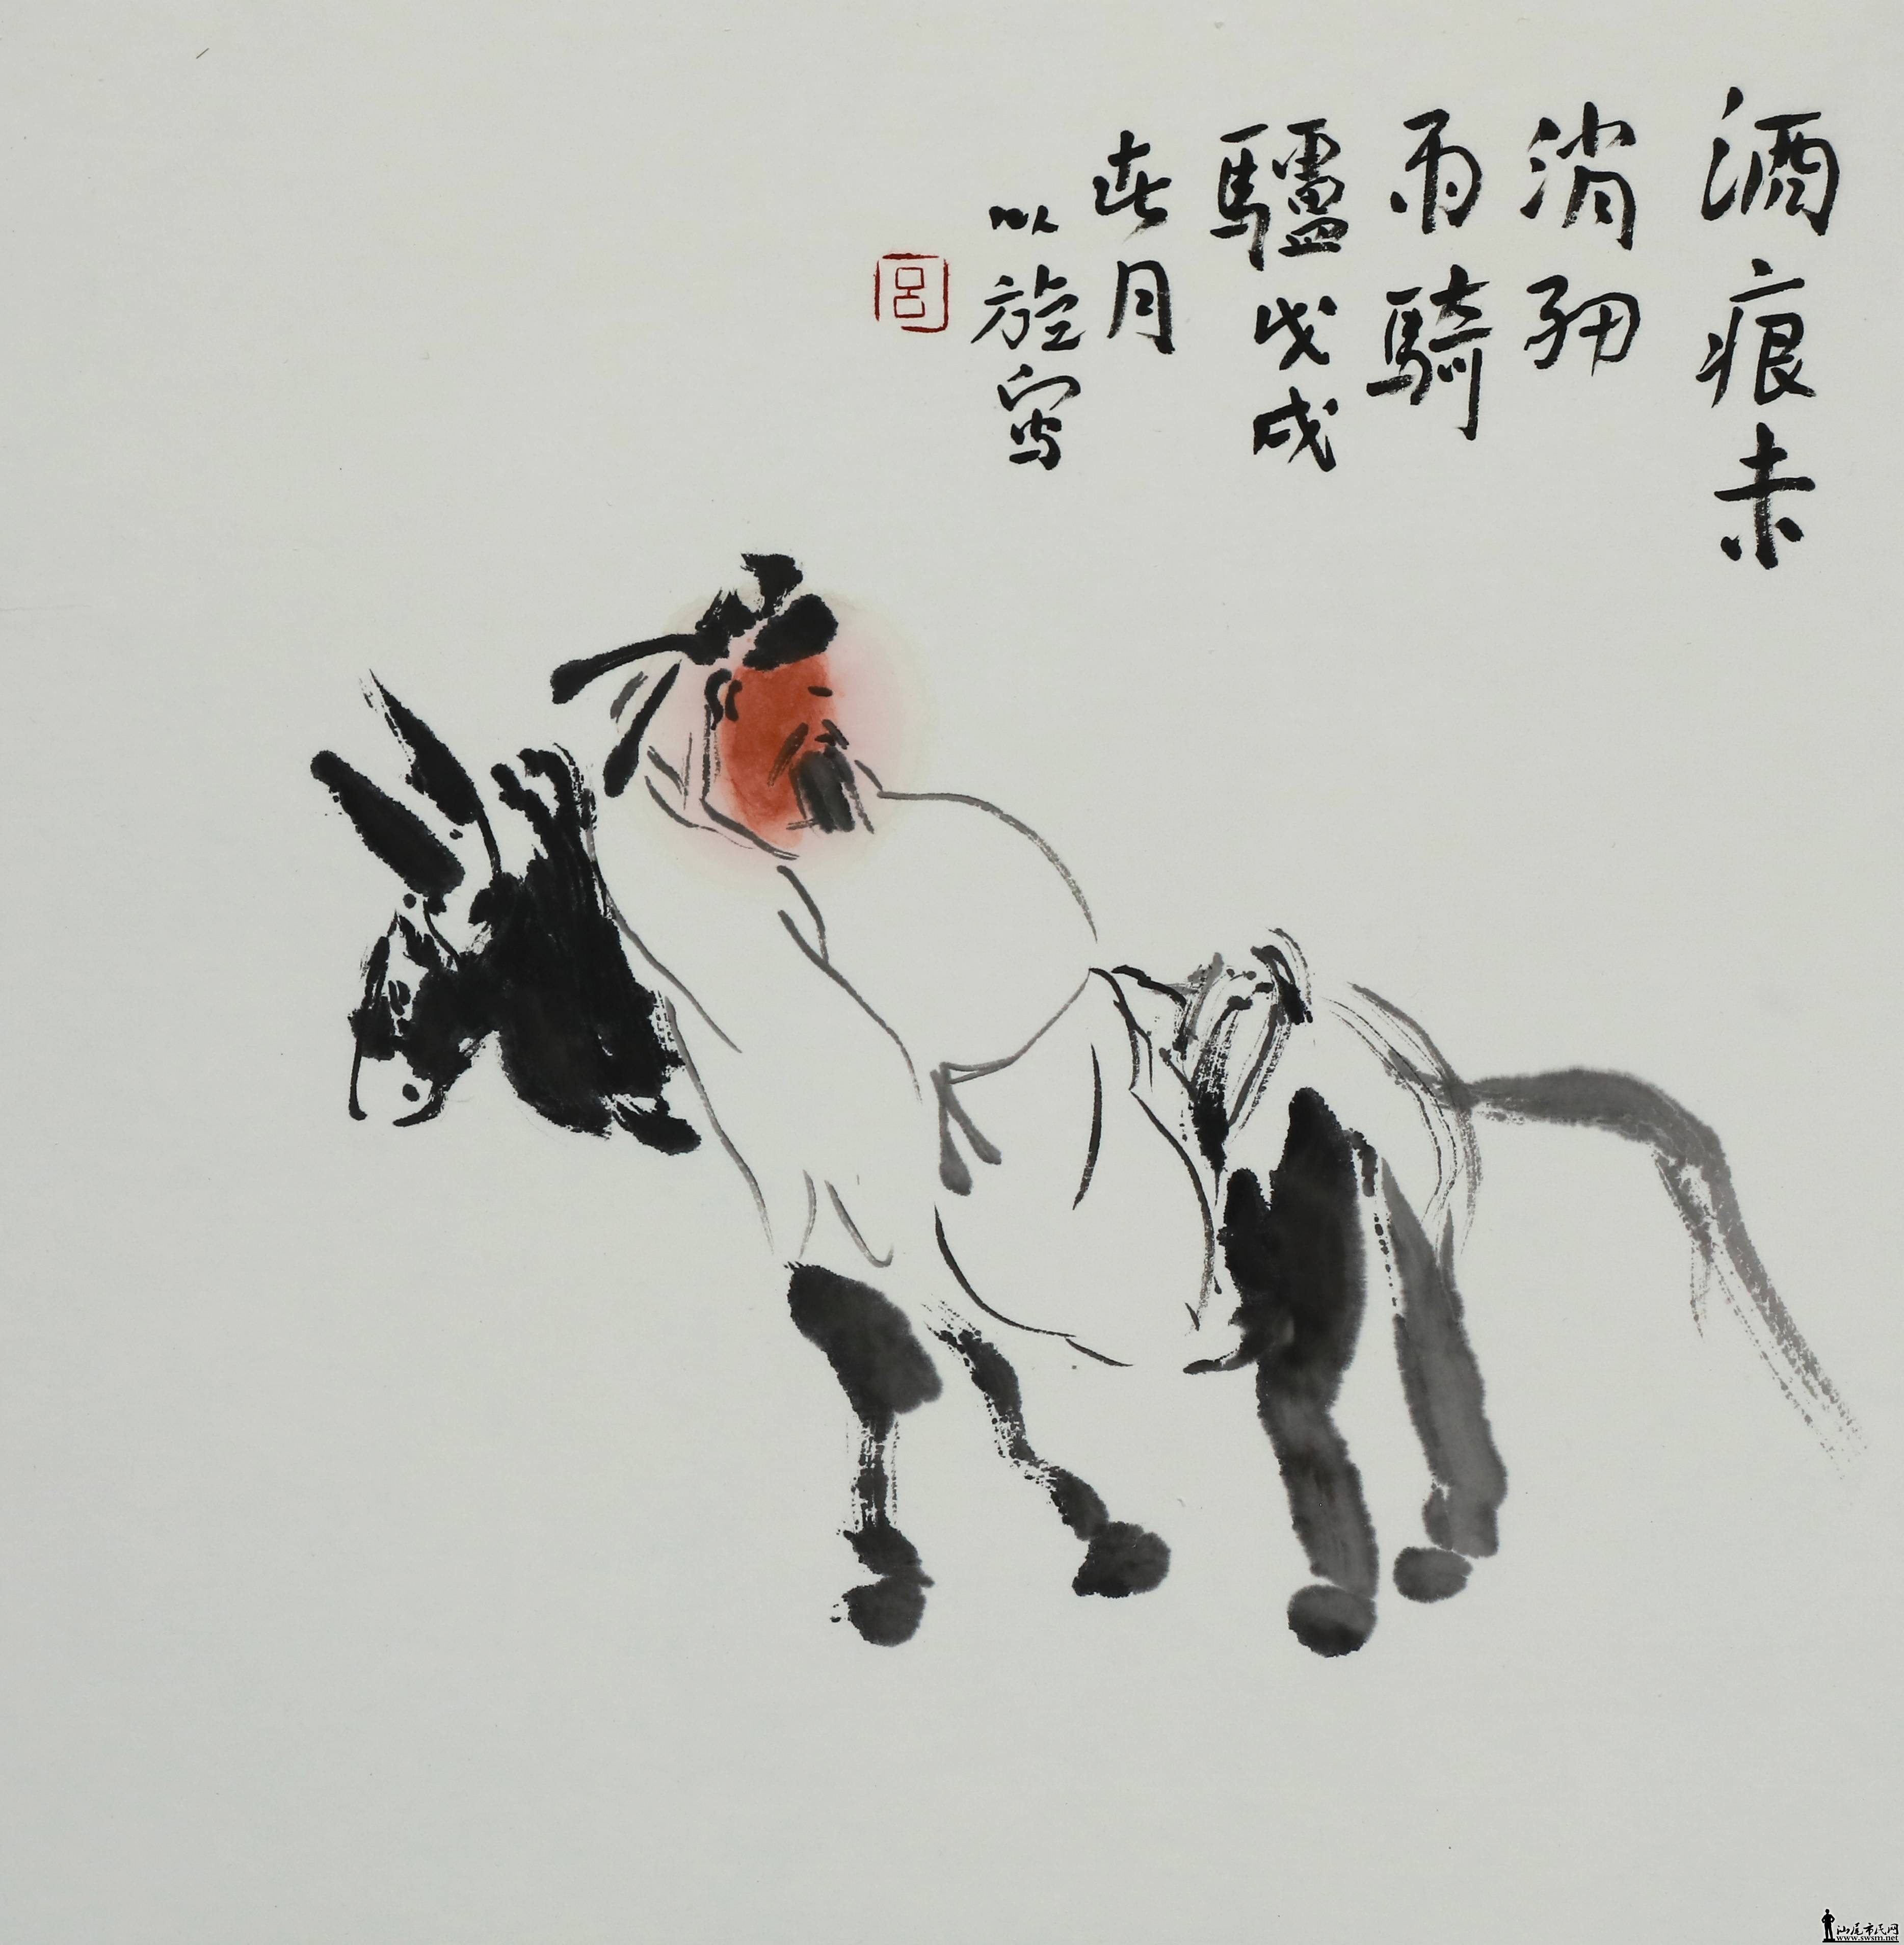 酒痕未
消細
雨騎
驢戊戌
春月
以旋寫
呂
汕尾市民网
www.swsm.net